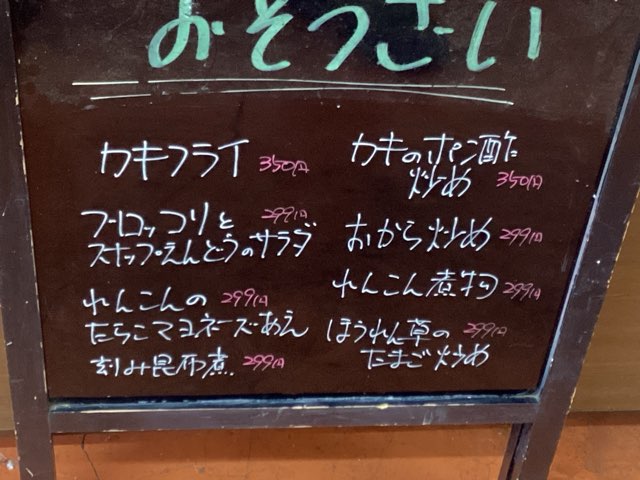 おそうざい
カキフライ 350円
ブロッコリと 299円
スナップえんどうのサラダ
れんこんの 299円
たらこマヨネーズあえ
刻み昆布煮 299円
カキのポン酢
炒め 350円
おから炒め 299円
れんこん煮物 299円
ほうれん草の 299円
たまご炒め